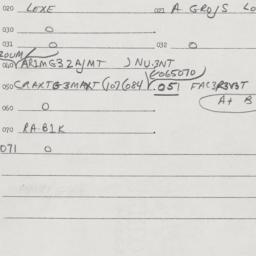 020 LEXE 021 A GROJS LO
030 O
031 O 032 O
040 AR1MG32AJMT ) NU.3NT
6065070
050 CRAXTG3MAXT (107(684) .051 FAC3R3V3T
060 O A+ B
070 RA.B1K
071 O